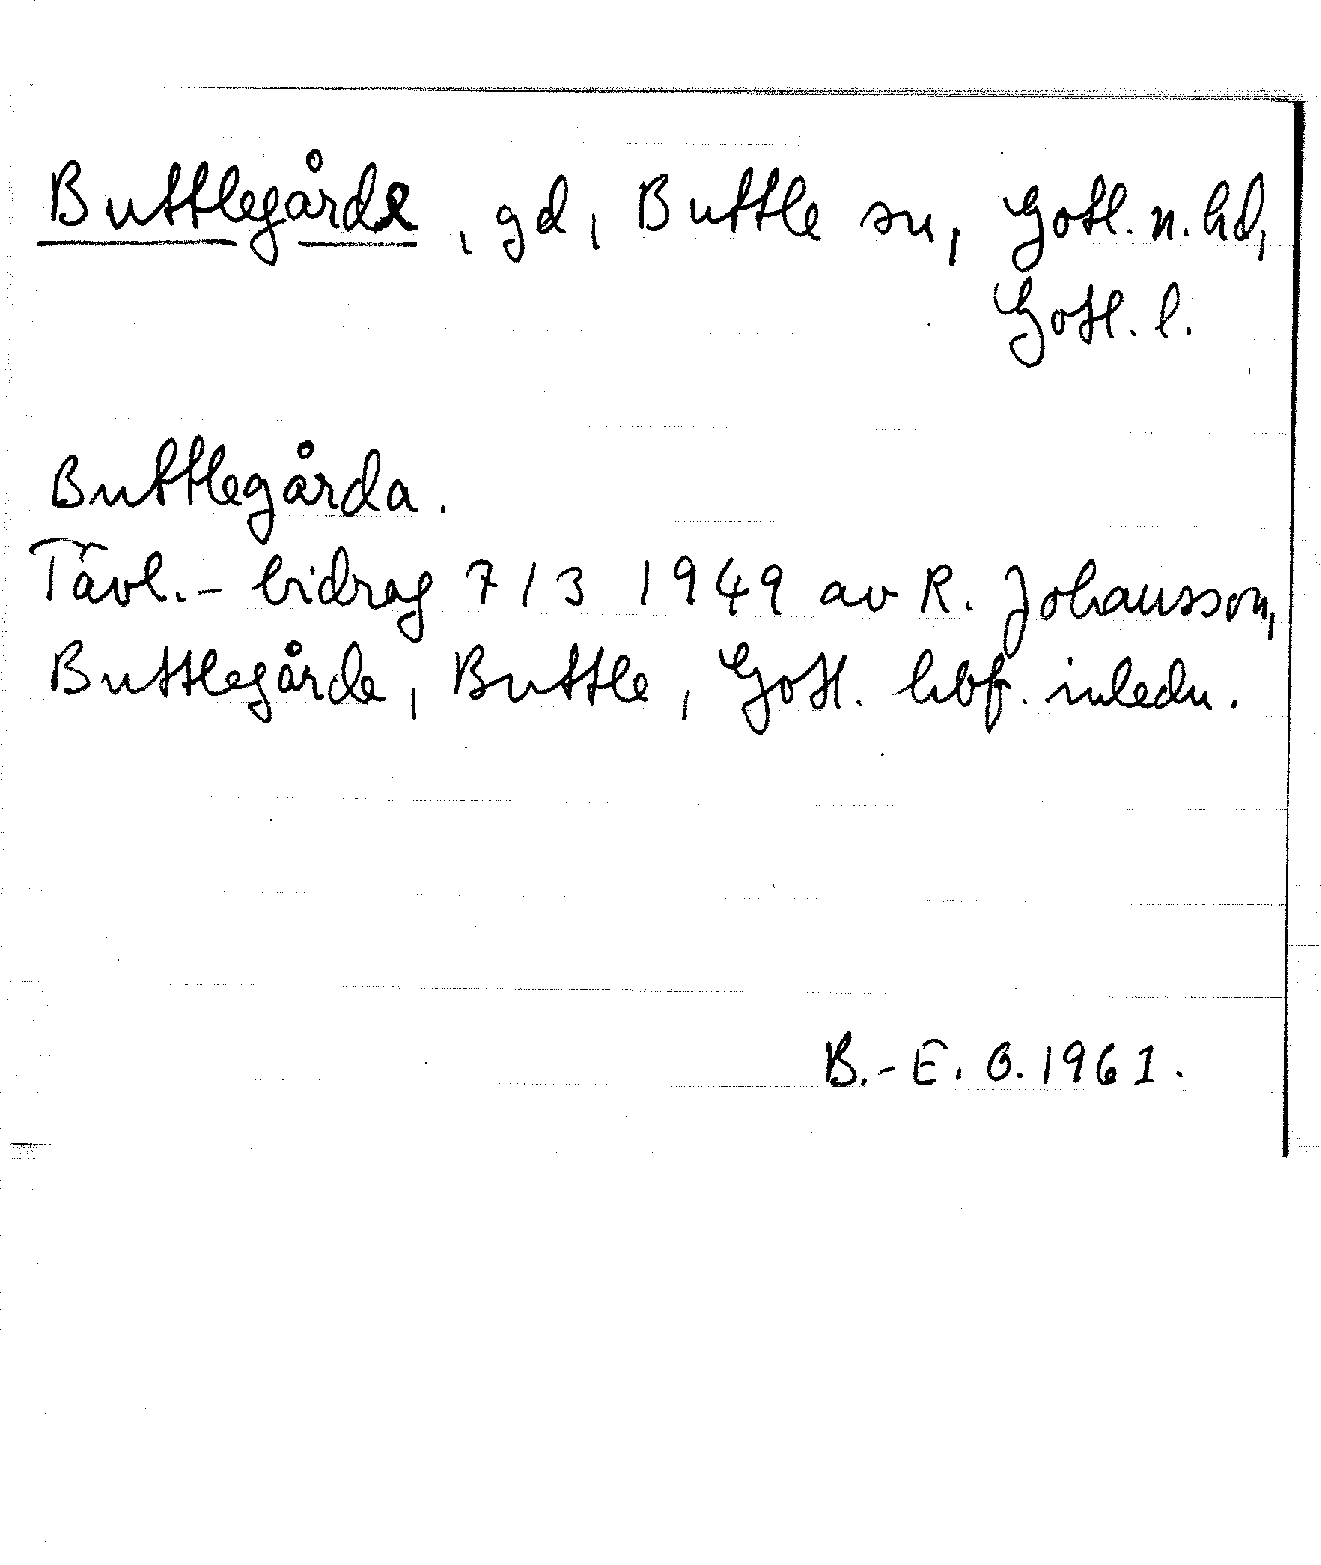 Buttlegårde, gd, Buttle sn, Gotl. n. hd,
Gotl. l.
Buttlegårda.
Tävl.- bidrag 7/3 1949 av R. Johansson,
Buttlegårde, Buttle, Gotl. hbf. inledn.
B.-E. O. 1961.